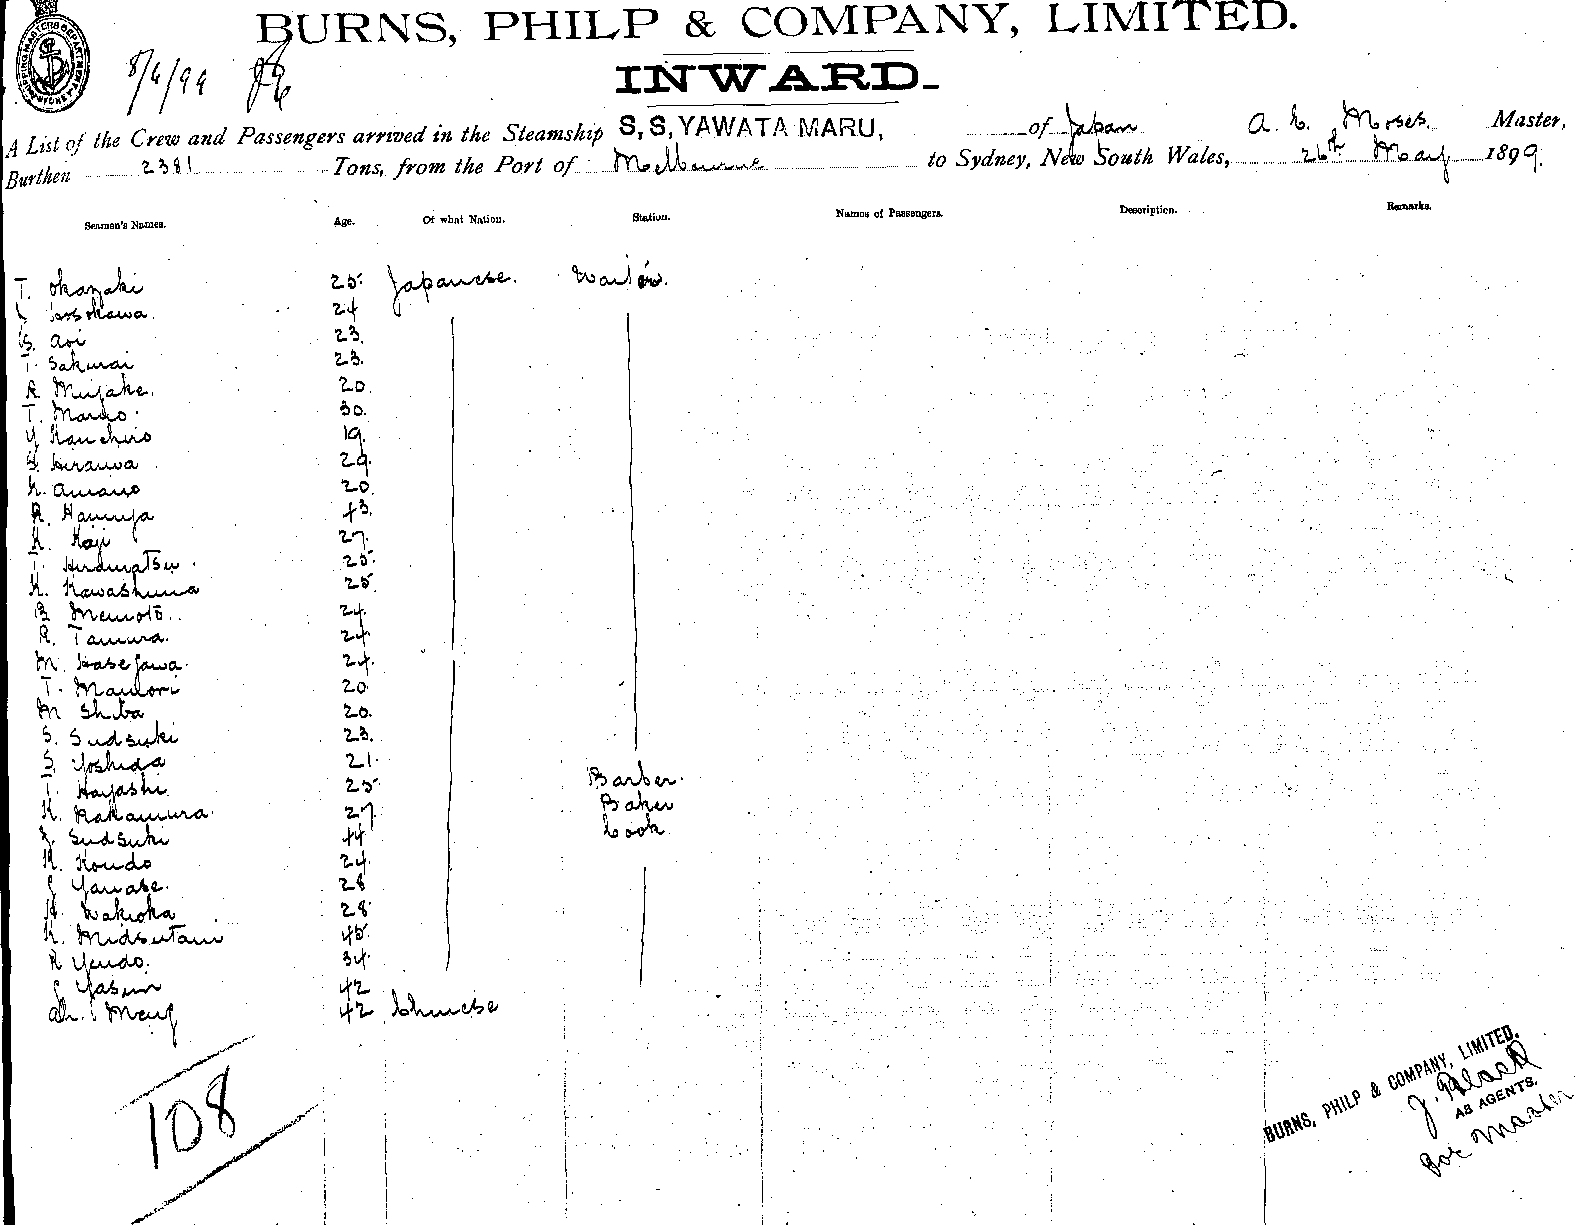 BURNS, PHILP & COMPANY, LIMITED.
8/6/99
INWARD.
A List of the Crew and Passengers arrived in the Steamship S,S, YAWATA MARU, of Japan A. E. Moses. Master,
Burthen 2381 Tons, from the Port of Melbourne to Sydney, New South Wales, 26th May 1899.
Seamen's Names. Age. Of what Nation. Station. Names of Passengers. Description. Remarks.
T. Okazaki 25 Japanese. Waiter.
Hosokawa 24
S. Aoi 23.
T. Sakurai 23.
R Miyake. 20.
T. Maruo 30.
Y Kanchiro 19.
S. Hiraiwa 29.
K. Amano 20.
R. Hamuya 43.
K. Kaji 27.
T. Hiramatsu 25.
K. Kawashima 25
B Memoto. 24.
R. Tamura. 24
M. Hasegawa. 24.
T. Mamori 20
M Shiba 20.
S. Sudsuki 23.
S. Yoshida 21.
T. Hayashi 25 Barber.
K. Nakamura. 27. Baker
Sudsuki 44 Cook
K. Kondo 24.
Yanase. 28
H. Wakioka 28
K. Midsutani 45.
R Yendo. 34.
Yasun 42
Ah. Meng 42 Chinese
108
BURNS, PHILP & COMPANY, LIMITED.
J. Black
AS AGENTS.
for Master